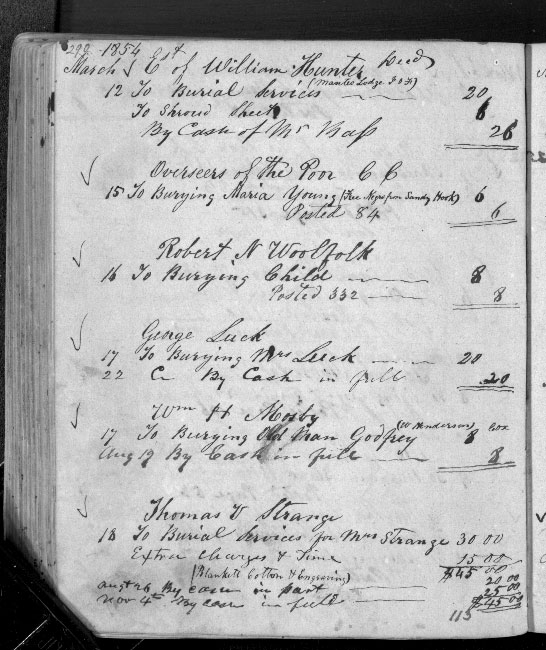 292 1854
March Est of William Hunter Decd
12 To Burial Services (Mantes Lodge I O F) 20
To Shroud Sheet 6
By Cash of Mr Bass 26
Overseers of the Poor C C
15 To Burying Maria Young (Free Negro from Sandy Hook) 6
Posted 84 6
Robert N Woolfolk
16 To Burying Child 8
Posted 332 8
George Luck
17 To Burying Mrs Luck 20
22 Cr By Cash in full 20
Wm H Mosby
17 To Burying Old Man Godfrey (W Henderson) 8 box
Aug 19 By Cash in full 8
Thomas V Strange
18 To Burial Services for Mrs Strange 30 00
Extra charges & Time 15 00
(Blankett Cotton & Engraving) $45 00
augt 26 By cash in part 20 00
Nov 4th By cash in full 25 00
$45 00
115